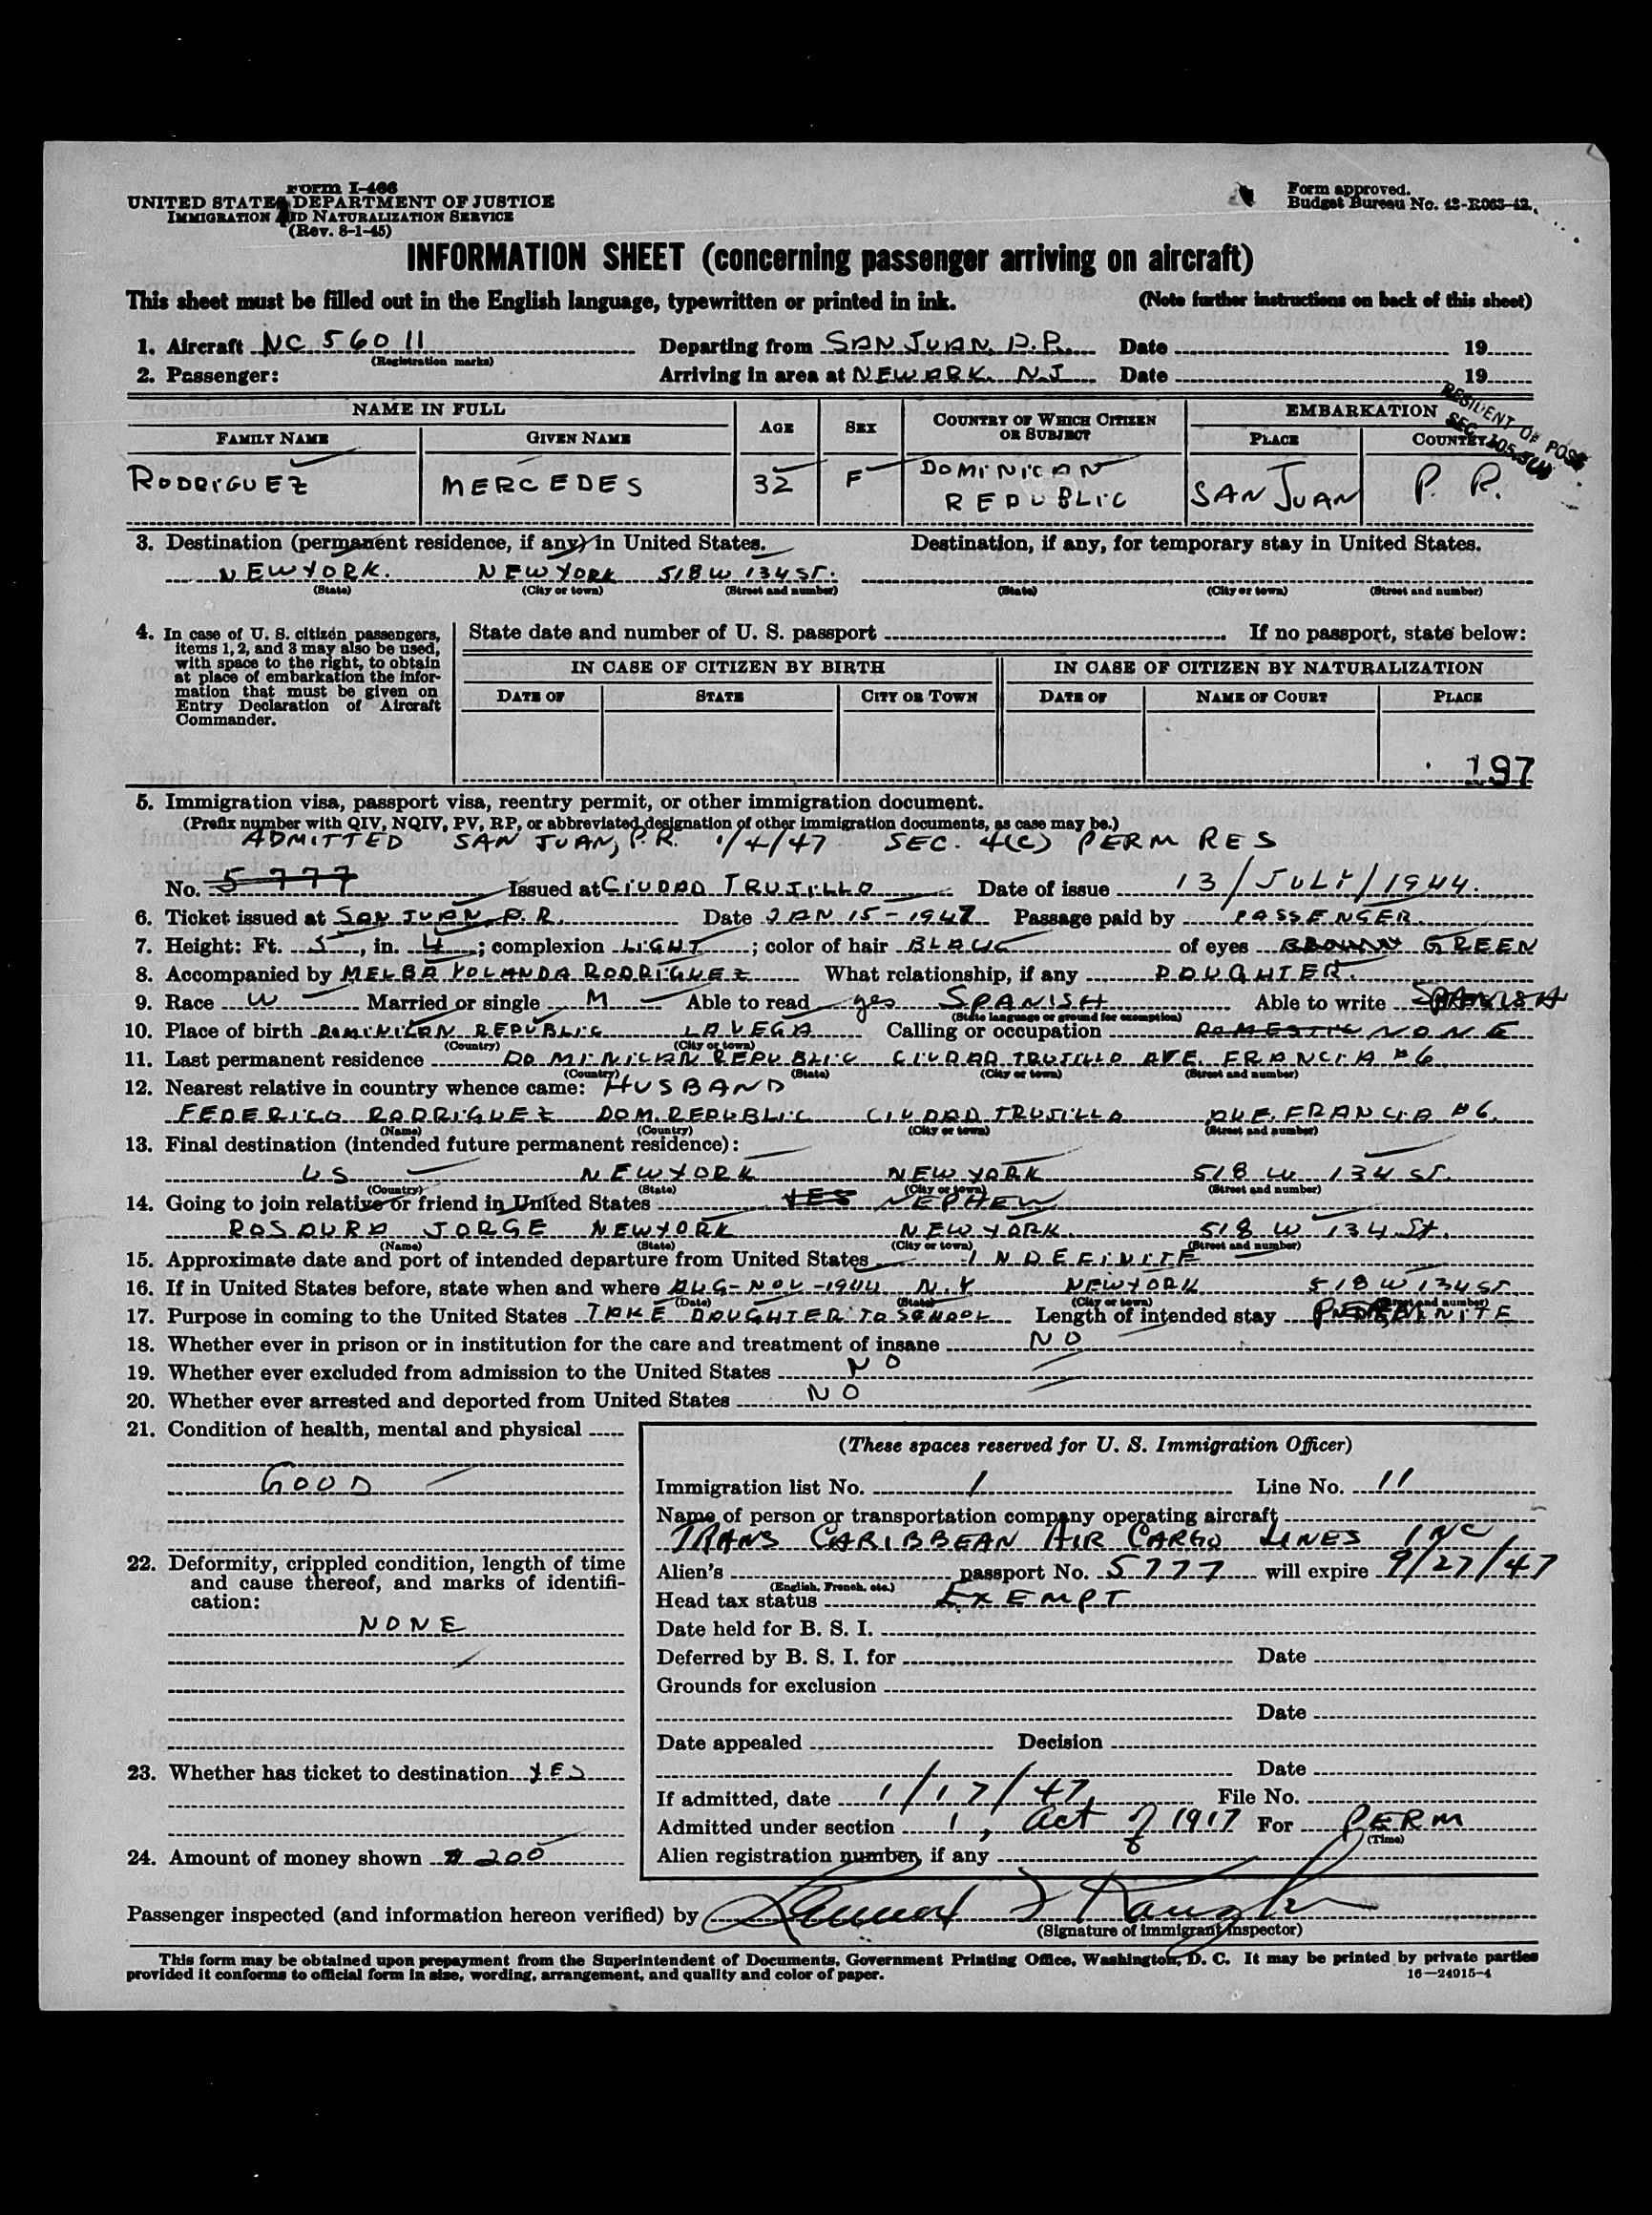 Form I-466
UNITED STATES DEPARTMENT OF JUSTICE
IMMIGRATION AND NATURALIZATION SERVICE
(Rev. 8-1-45)
Form approved.
Budget Bureau No. 43-R063-42.
INFORMATION SHEET (concerning passenger arriving on aircraft)
This sheet must be filled out in the English language, typewritten or printed in ink. (Note further instructions on back of this sheet)
1. Aircraft NC 56011 Departing from SAN JUAN, P.R. Date 19
(Registration marks)
2. Passenger: Arriving in area at NEWARK N.J Date 19
RESIDENT OF POSS
SEC.
NAME IN FULL AGE SEX COUNTRY OF WHICH CITIZEN OR SUBJECT EMBARKATION
FAMILY NAME GIVEN NAME PLACE COUNTRY
RODRIGUEZ MERCEDES 32 F DOMINICAN REPUBLIC SAN JUAN P. R.
3. Destination (permanent residence, if any) in United States. Destination, if any, for temporary stay in United States.
NEW YORK. NEW YORK 518 W 134 ST.
(State) (City or town) (Street and number) (State) (City or town) (Street and number)
4. In case of U. S. citizen passengers, items 1, 2, and 3 may also be used, with space to the right, to obtain at place of embarkation the information that must be given on Entry Declaration of Aircraft Commander.
State date and number of U. S. passport If no passport, state below:
IN CASE OF CITIZEN BY BIRTH IN CASE OF CITIZEN BY NATURALIZATION
DATE OF STATE CITY OR TOWN DATE OF NAME OF COURT PLACE
197
5. Immigration visa, passport visa, reentry permit, or other immigration document.
(Prefix number with QIV, NQIV, PV, RP, or abbreviated designation of other immigration documents, as case may be.)
ADMITTED SAN JUAN, P.R. 1/4/47 SEC. 4(C) PERM RES
No. 5777 Issued at CIUDAD TRUJILLO Date of issue 13/JULY/1944.
6. Ticket issued at SAN JUAN, P.R. Date JAN 15-1947 Passage paid by PASSENGER.
7. Height: Ft. 5, in. 4; complexion LIGHT; color of hair BLACK of eyes BROWN GREEN
8. Accompanied by MELBA YOLANDA RODRIGUEZ What relationship, if any DAUGHTER.
9. Race W Married or single M Able to read yes SPANISH Able to write SPANISH
(State language or ground for exemption)
10. Place of birth DOMINICAN REPUBLIC LA VEGA Calling or occupation DOMESTIC NONE
(Country) (City or town)
11. Last permanent residence DOMINICAN REPUBLIC CIUDAD TRUJILLO AVE. FRANCIA #6
(Country) (State) (City or town) (Street and number)
12. Nearest relative in country whence came: HUSBAND
FEDERICO RODRIGUEZ DOM. REPUBLIC CIUDAD TRUJILLO AVE. FRANCIA #6.
(Name) (Country) (City or town) (Street and number)
13. Final destination (intended future permanent residence):
US NEW YORK NEW YORK 518 W 134 ST.
(Country) (State) (City or town) (Street and number)
14. Going to join relative or friend in United States YES NEPHEW
ROSAURA JORGE NEW YORK NEW YORK. 518 W 134 St.
(Name) (State) (City or town) (Street and number)
15. Approximate date and port of intended departure from United States INDEFINITE
16. If in United States before, state when and where AUG-NOV-1944 N.Y NEW YORK 518 W 134 ST
(Date) (State) (City or town) (Street and number)
17. Purpose in coming to the United States TAKE DAUGHTER TO SCHOOL Length of intended stay
18. Whether ever in prison or in institution for the care and treatment of insane NO
19. Whether ever excluded from admission to the United States NO
20. Whether ever arrested and deported from United States NO
21. Condition of health, mental and physical
GOOD
22. Deformity, crippled condition, length of time and cause thereof, and marks of identification:
NONE
23. Whether has ticket to destination YES
24. Amount of money shown $ 200
(These spaces reserved for U. S. Immigration Officer)
Immigration list No. 1 Line No. 11
Name of person or transportation company operating aircraft
TRANS CARIBBEAN AIR CARGO LINES INC
Alien's passport No. 5777 will expire 9/27/47
(English, French, etc.)
Head tax status EXEMPT
Date held for B. S. I.
Deferred by B. S. I. for Date
Grounds for exclusion
Date
Date appealed Decision
Date
If admitted, date 1/17/47 File No.
Admitted under section 1, Act of 1917 For PERM
(Time)
Alien registration number, if any
Passenger inspected (and information hereon verified) by
(Signature of immigrant inspector)
This form may be obtained upon prepayment from the Superintendent of Documents, Government Printing Office, Washington, D. C. It may be printed by private parties
provided it conforms to official form in size, wording, arrangement, and quality and color of paper. 16—24915-4